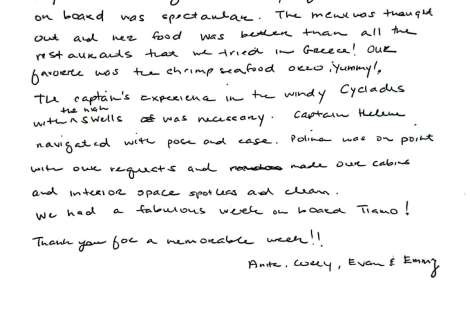 on board was spectacular. The menu was thought
out and her food was better than all the
restaurants that we tried in Greece! Our
favorite was the shrimp seafood orzo, Yummy!,
The captain's experience in the windy Cyclades
with the high swells was necessary. Captain Helene
navigated with pose and ease. Polina was on point
with our requests and made our cabins
and interior space spotless and clean.
We had a fabulous week on board Tiamo!
Thank you for a memorable week!!
Anita, Evan & Emmy